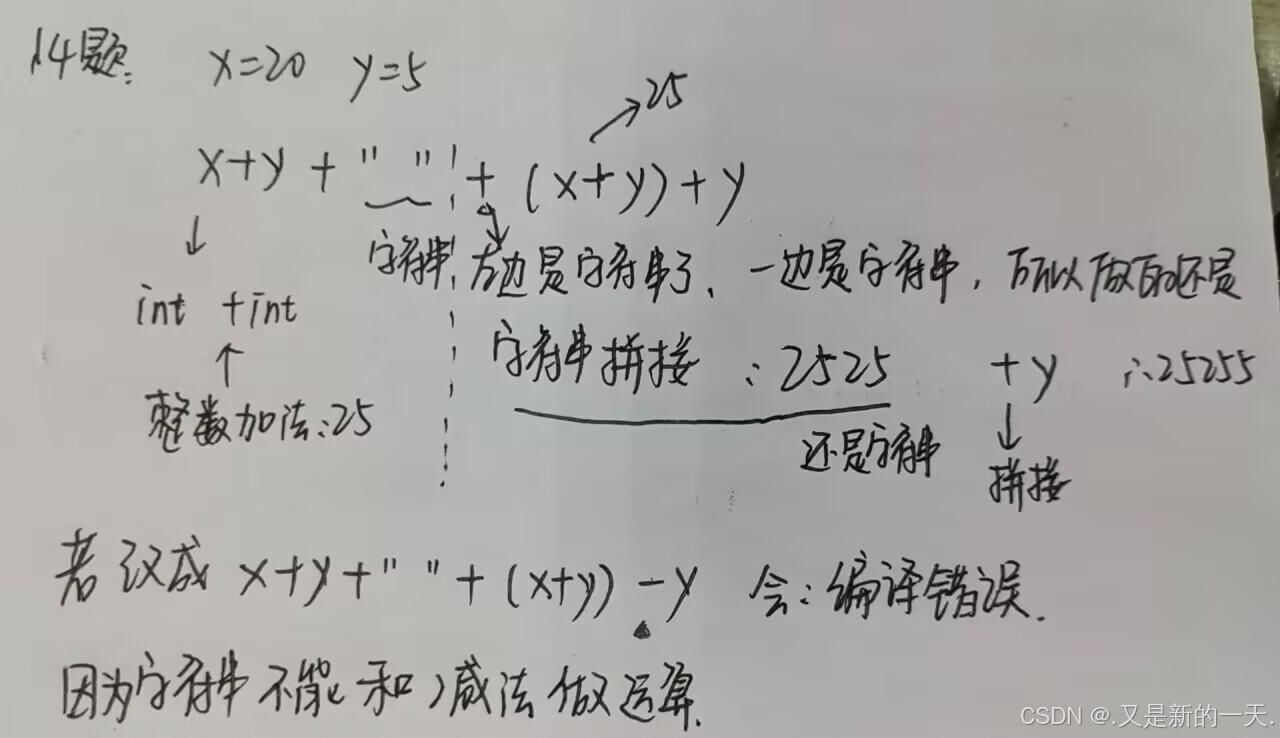 14题: x=20 y=5
→25
x+y + " " + (x+y)+y
字符串 左边是字符串了、一边是字符串,所以做的还是
int +int
字符串拼接 :2525 +y ∴25255
整数加法:25
还是字符串
拼接
若改成 x+y+" "+(x+y)-y 会:编译错误.
因为字符串不能和减法做运算.
CSDN @.又是新的一天.